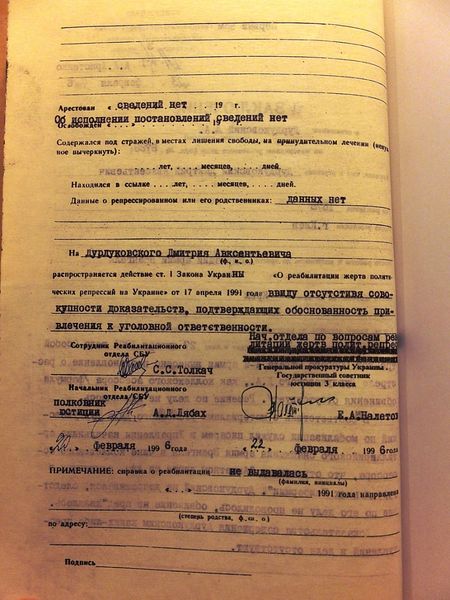 Арестован « сведений нет . . . 19 г.
Об исполнении постановлений сведений нет
Освобожден «
Содержался под стражей, в местах лишения свободы, на принудительном лечении
ное вычеркнуть):
. . . . . лет, . . . . месяцев, . . . . . дней.
Находился в ссылке . . . . лет, . . . . . месяцев, . . . . . дней.
Данные о репрессированном или его родственниках: данных нет
На Дурдуковского Дмитрия Авксентьевича
(ф., и. о.)
распространяется действие ст. 1 Закона Украины «О реабилитации жертв полити-
ческих репрессий на Украине» от 17 апреля 1991 года ввиду отсутствия сово-
купности доказательств, подтверждающих обоснованность при-
влечения к уголовной ответственности.
Нач. отдела по вопросам реа
Сотрудник Реабилитационного
отдела СБУ
литации жертв полит. репрес
С.С.Толкач
Генеральной прокуратуры Украины
Государственный советник
юстиции 3 класса
Начальник Реабилитационного
отдела СБУ
полковник
юстиции
А.Д.Лябах
Е.А.Налетов
22 февраля 1996 года
« 22 » февраля 1996 года
ПРИМЕЧАНИЕ: справка о реабилитации не выдавалась
(фамилия, инициалы)
« . . . » 1991 года направлена
(степень родства, ф., и. о.)
по адресу:
Подпись